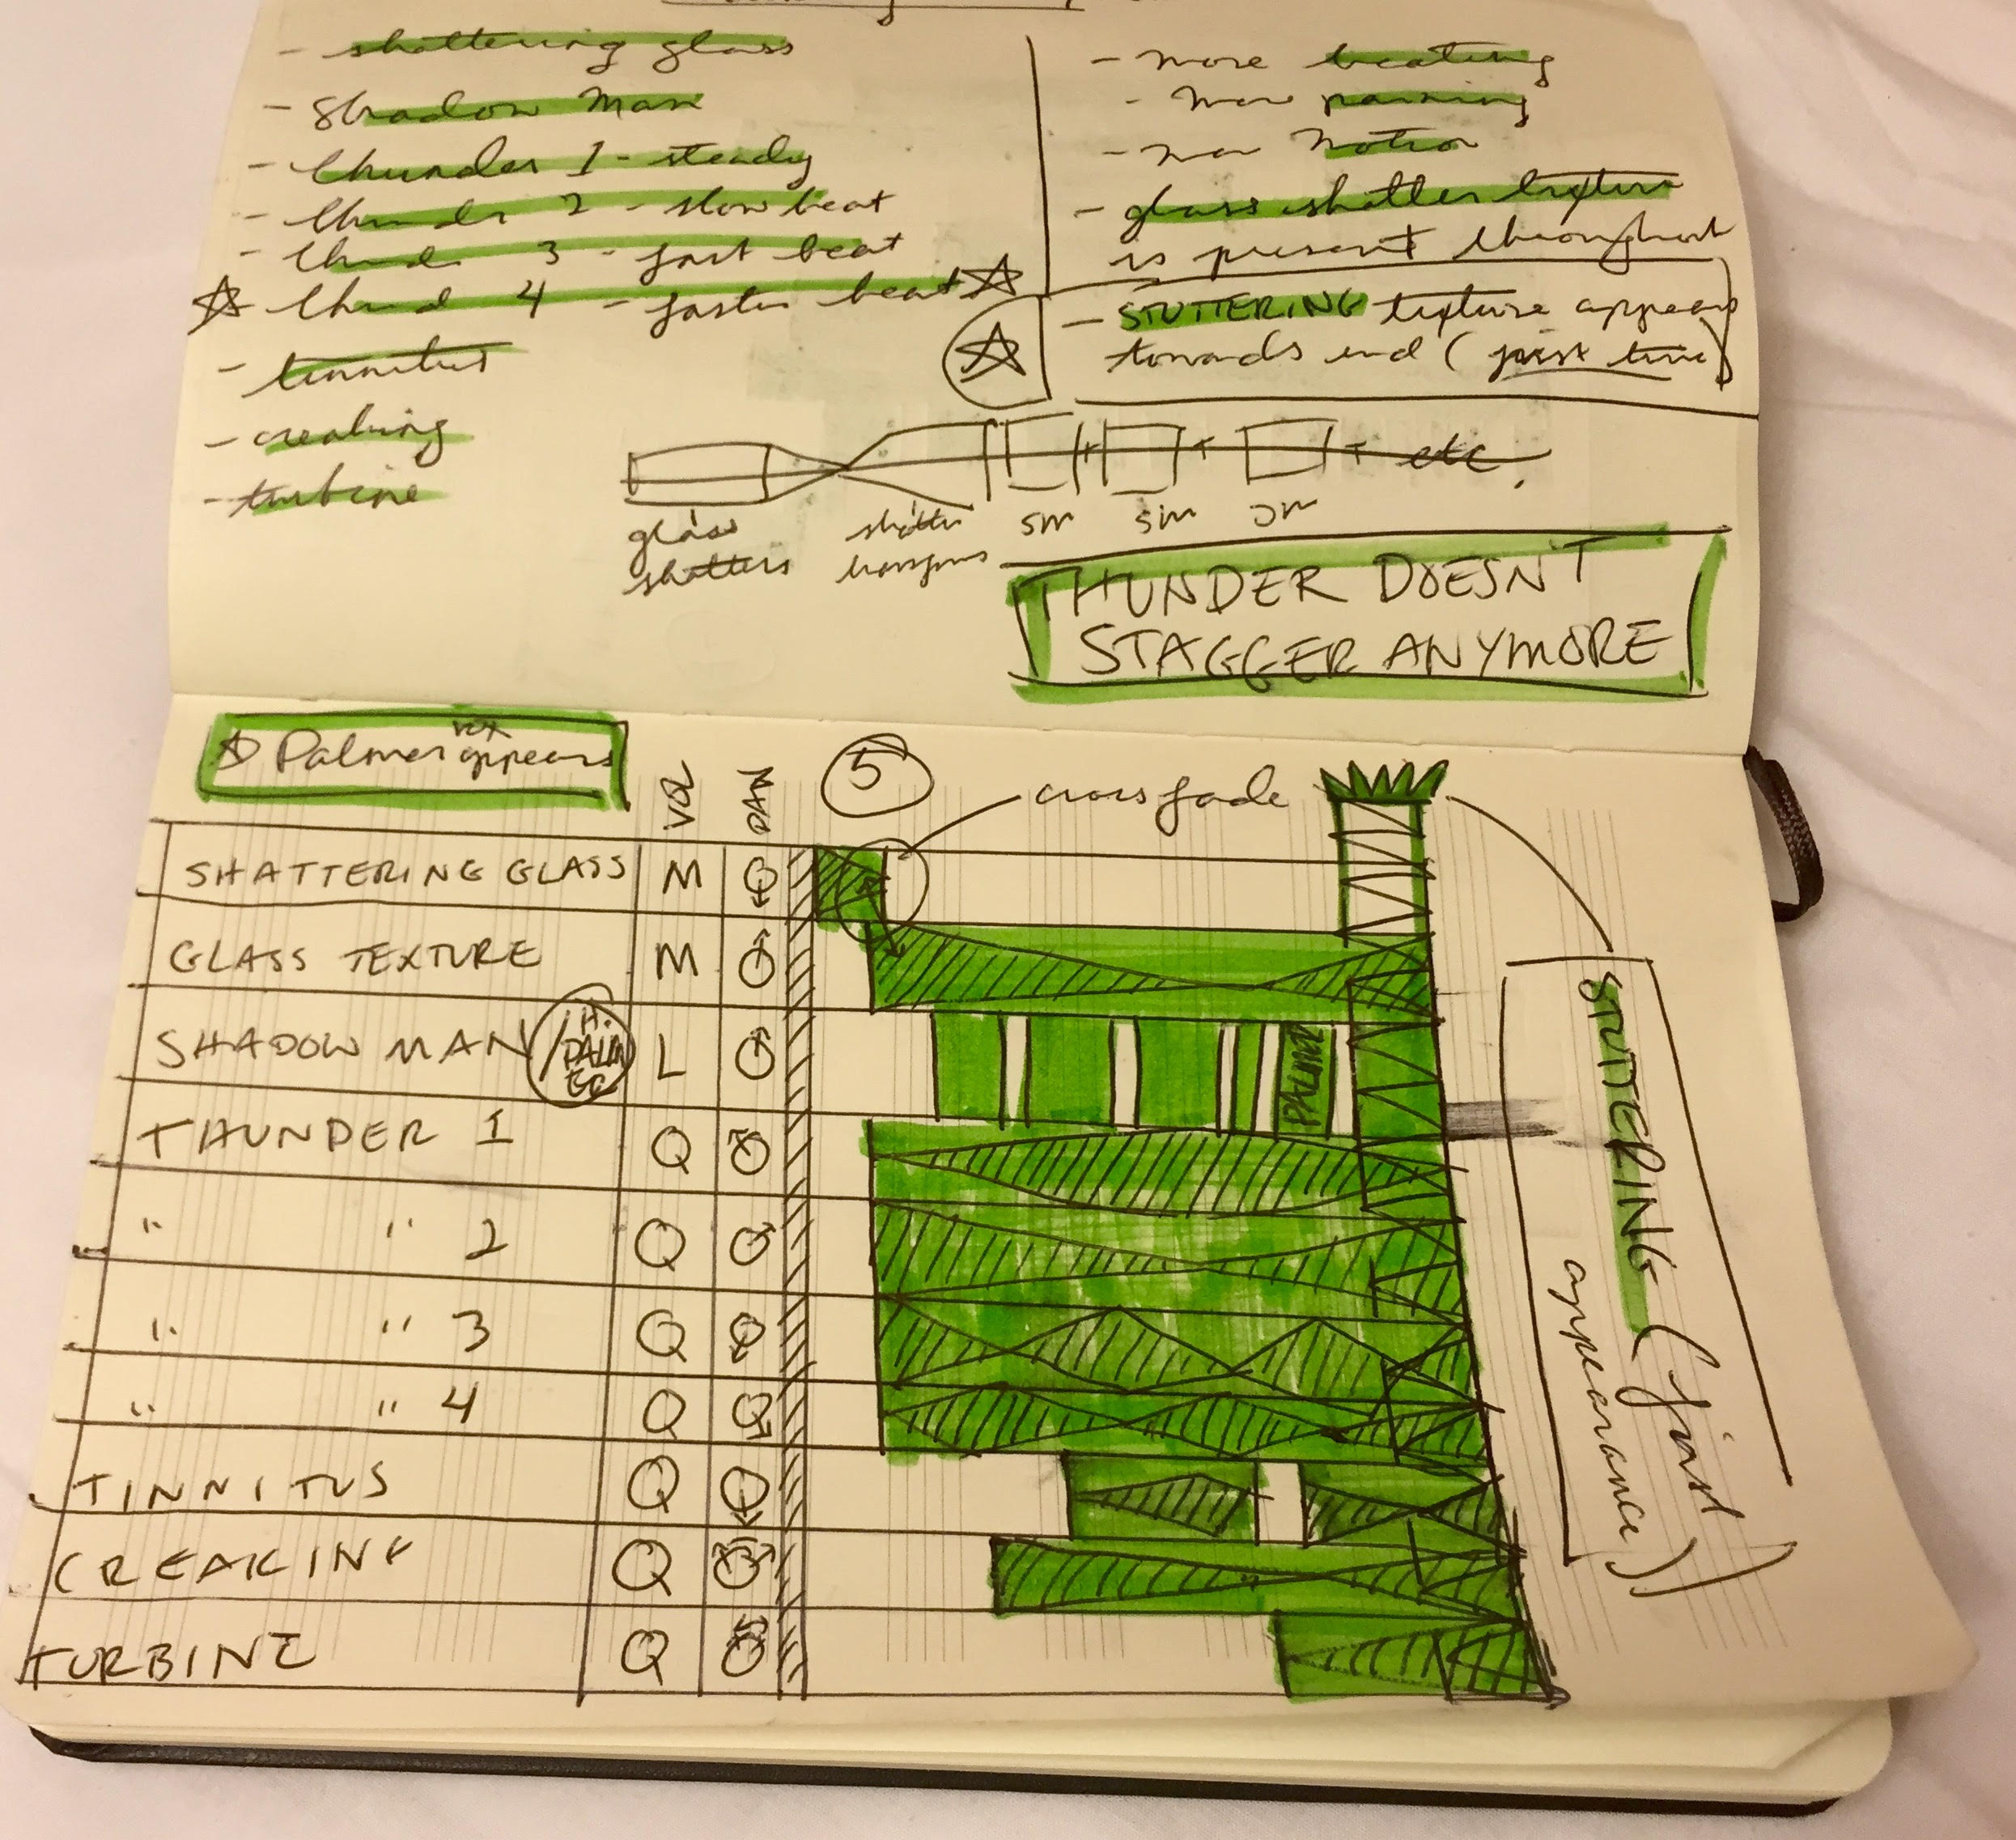 - shattering glass
- Shadow Man
- thunder 1 - steady
- thunder 2 - slow beat
- thunder 3 - fast beat
☆ thund 4 - faster beat ☆
- tinnitus
- creaking
- turbine
- more beating
- more panning
- more motion
- glass shatter texture
is present throughout
- STUTTERING texture appears
towards end (first time)
etc.
glass
shatters
shatter
transforms
SM
SM
SM
THUNDER DOESN'T
STAGGER ANYMORE
☆ Palmer vox appears
VOL
PAN
5
crossfade
SHATTERING GLASS M
GLASS TEXTURE M
SHADOW MAN / H. PALM L
PALMER
THUNDER 1 Q
" " 2 Q
" " 3 Q
" " 4 Q
TINNITUS Q
CREAKING Q
TURBINE Q
STUTTERING (first
appearance)